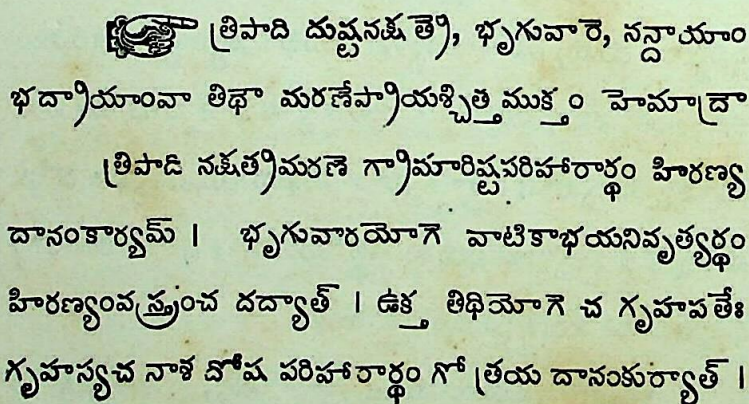 త్రిపాది దుష్టనక్షత్రే, భృగువారె, నన్దాయాం
భద్రాయాంవా తిథౌ మరణేప్రాయశ్చిత్తముక్తం హెమాద్రౌ
త్రిపాది నక్షత్రమరణె గ్రామారిష్టపరిహారార్థం హిరణ్య
దానంకార్యమ్ । భృగువారయోగె వాటికాభయనివృత్యర్థం
హిరణ్యంవస్త్రంచ దద్యాత్ । ఉక్త తిథియోగె చ గృహపతేః
గృహస్యచ నాశ దోష పరిహారార్థం గో త్రయ దానంకుర్యాత్ ।